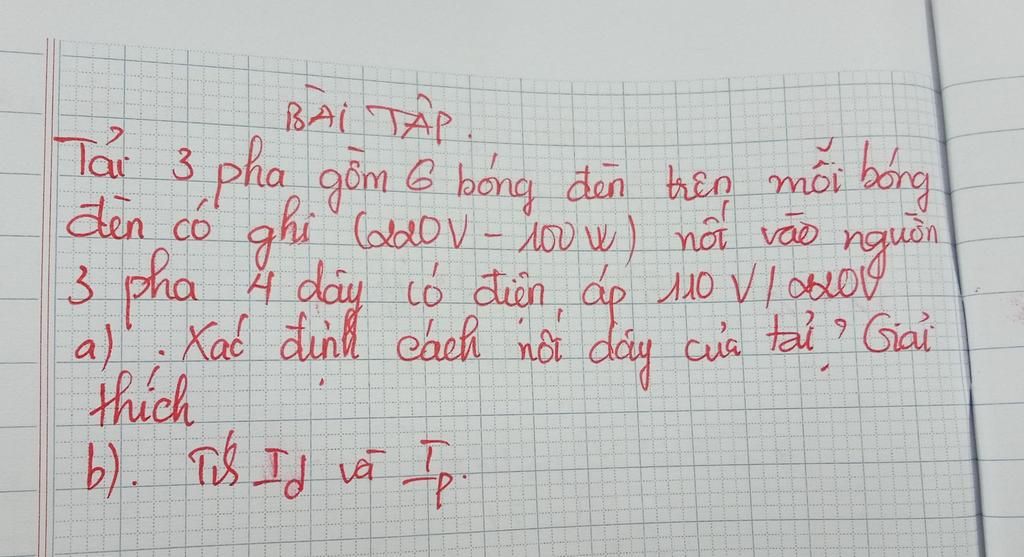 BÀI TẬP.
Tải 3 pha gồm 6 bóng đèn trên mỗi bóng
đèn có ghi (220V - 100W) nối vào nguồn
3 pha 4 dây có điện áp 110V/220V
a). Xác định cách nối dây của tải? Giải
thích
b). Id và Ip.